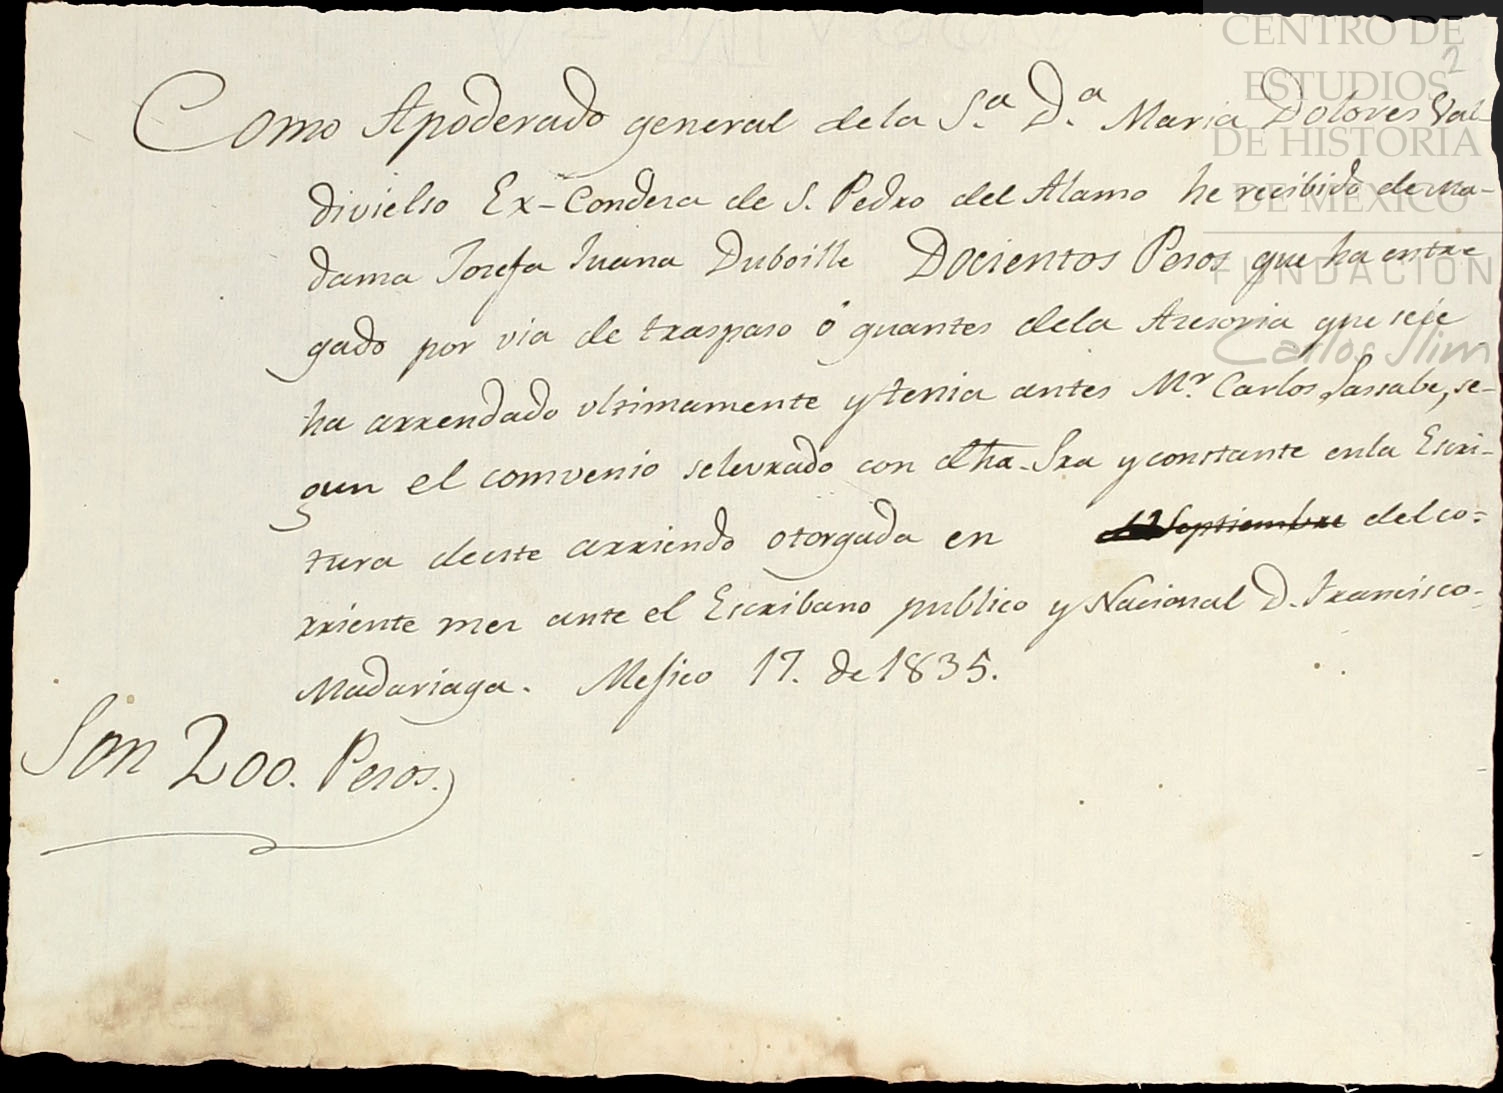 CENTRO DE
ESTUDIOS
DE HISTORIA
DE MÉXICO
FUNDACIÓN
Carlos Slim
2
Como Apoderado general dela S.ª D.ª Maria Dolores Val-
divielso Ex-Condesa de S. Pedro del Alamo he recibido de ma-
dama Josefa Juana Duboille Docientos Pesos que ha entre
gado por via de traspaso ó guantes dela Acesoria que sele
ha arrendado ultimamente y tenia antes M.r Carlos Lassabe, se-
gun el comvenio selevrado con dha. Sra y constante enla Escri-
tura deeste arriendo otorgada en 12 Septiembre del co-
rriente mes ante el Escribano publico y Nacional D. Francisco
Madariaga. Mesico 17. de 1835.
Son 200. Pesos.